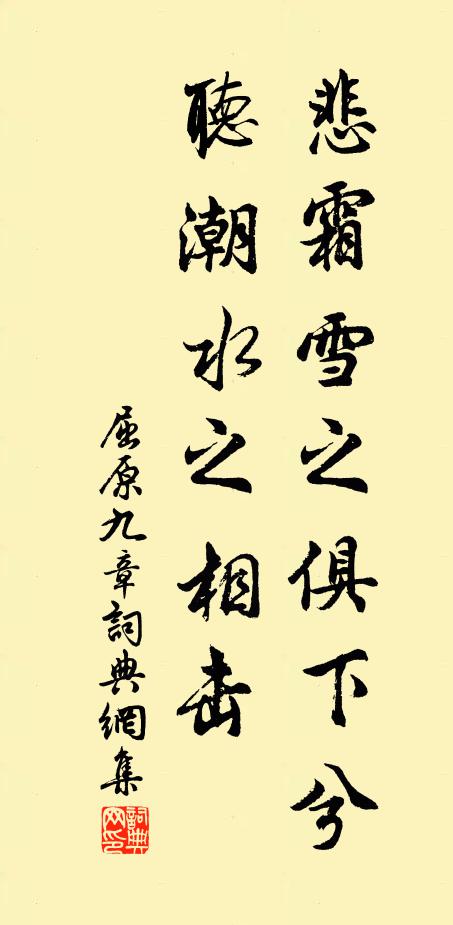 悲霜雪之俱下兮
聽潮水之相击
屈原九章詞典網集
詞典网印